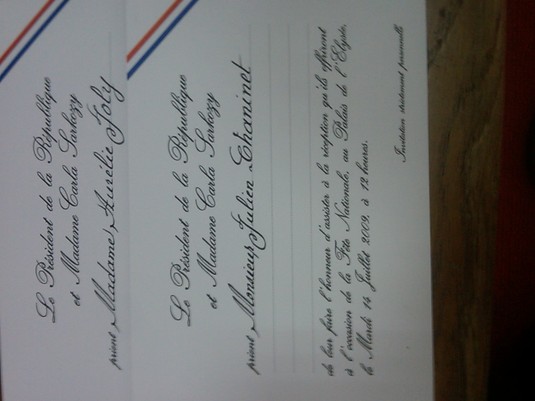 Le Président de la République
et Madame Carla Sarkozy
prient Madame Aurélie Joly
Le Président de la République
et Madame Carla Sarkozy
prient Monsieur Julien Chaninet
de leur faire l'honneur d'assister à la réception qu'ils offriront
à l'occasion de la Fête Nationale, au Palais de l'Élysée,
le Mardi 14 Juillet 2009, à 12 heures.
Invitation strictement personnelle